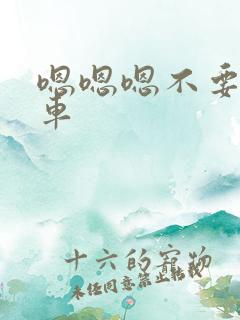 嗯嗯嗯不要
車
十六的寵物
未经同意禁止转载